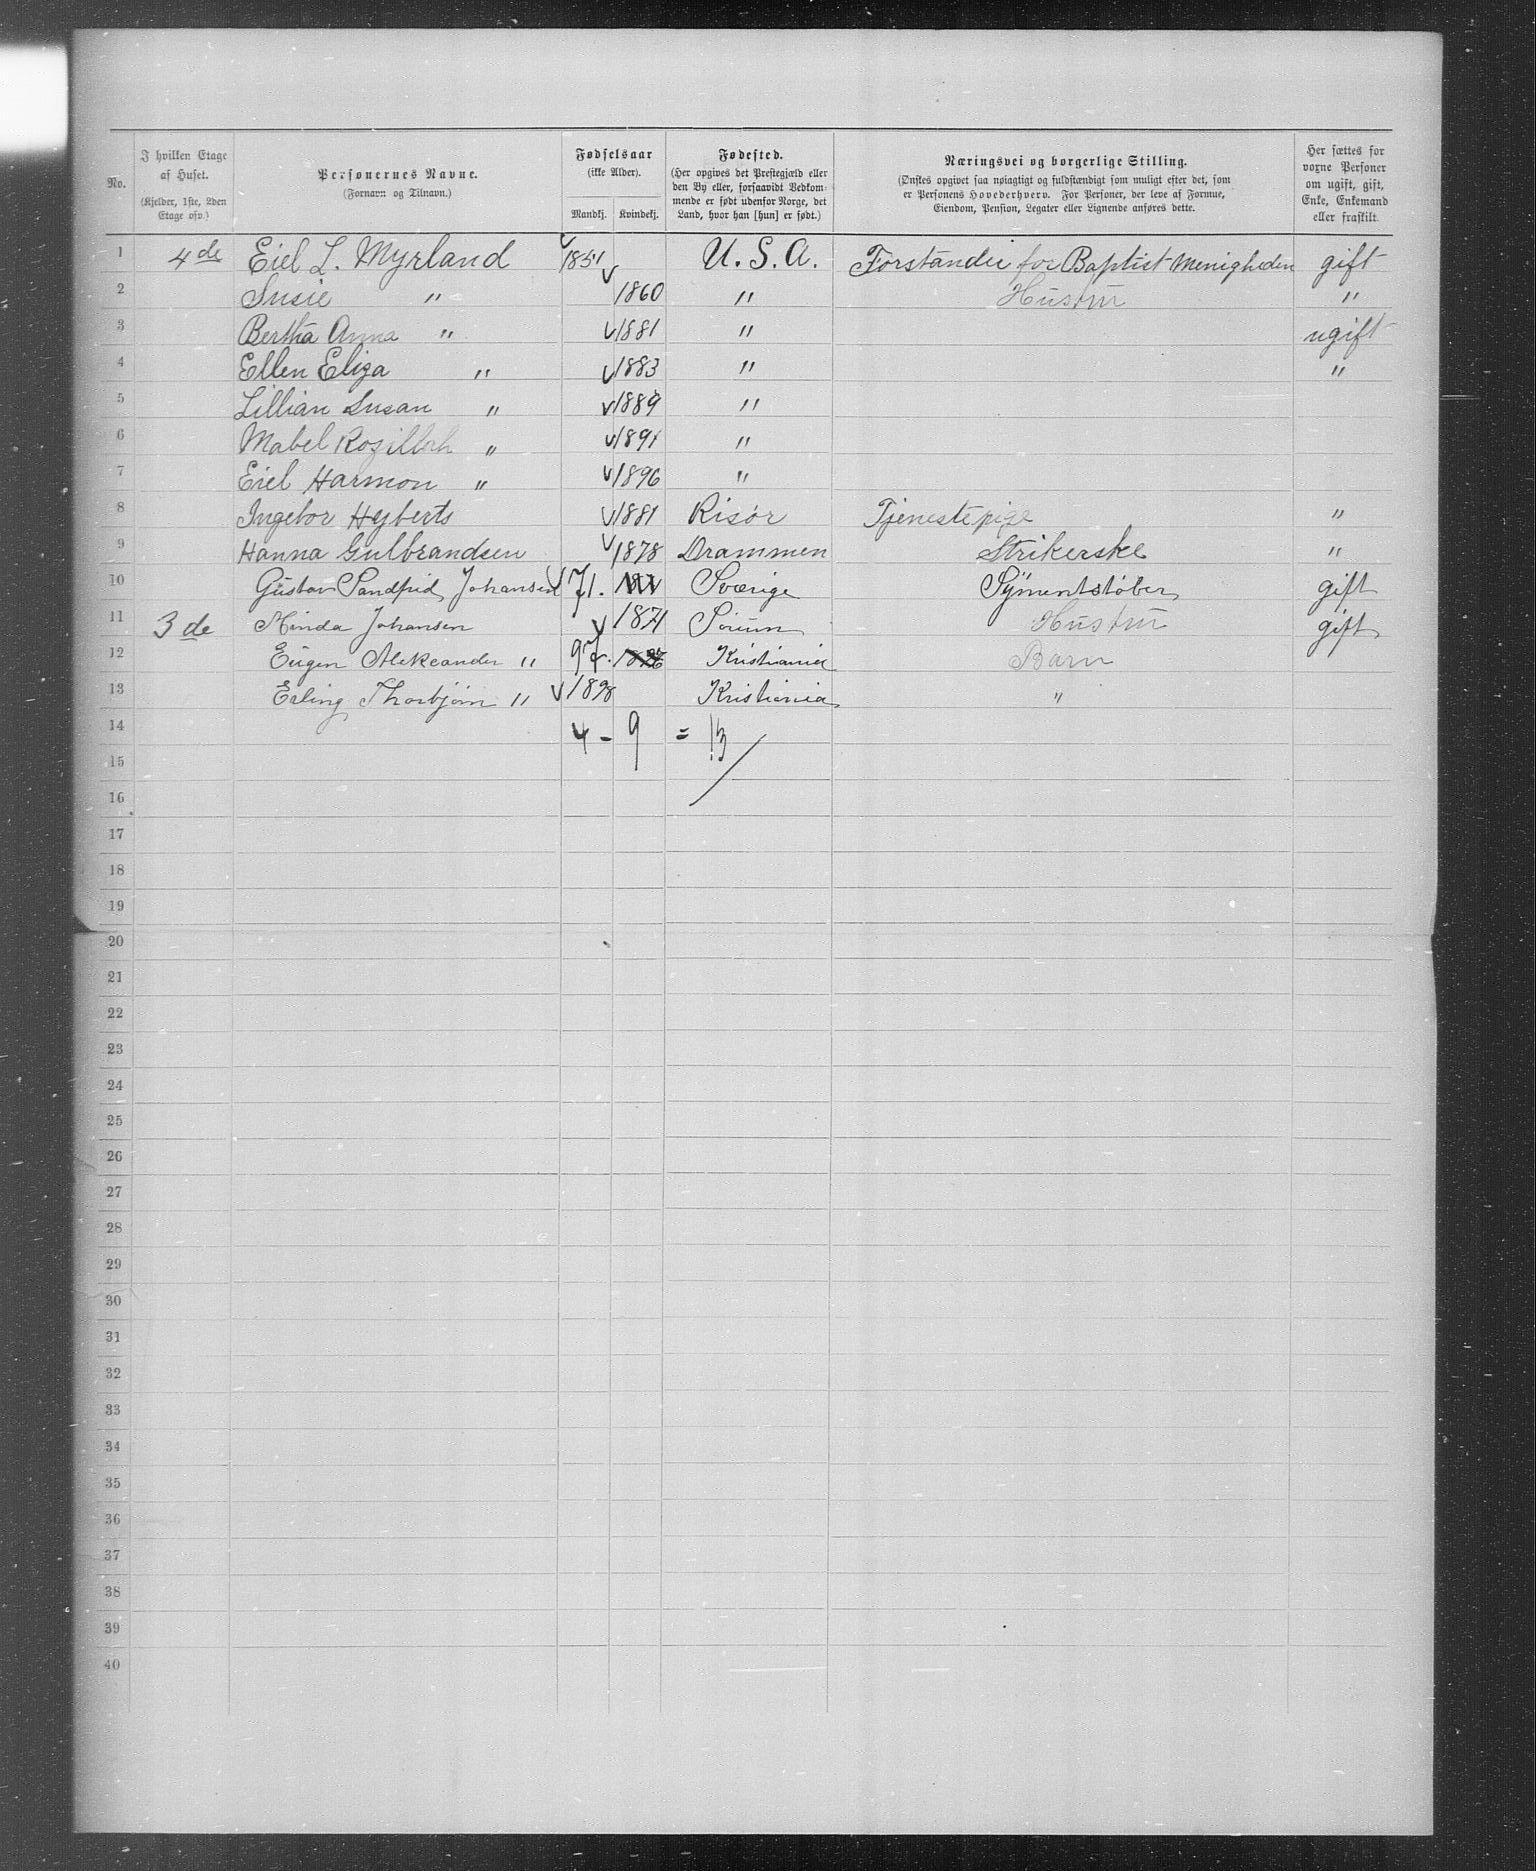 No. I hvilken Etage af Huset. (Kjelder, 1ste, 2den Etage osv.) Personernes Navne. (Fornavn og Tilnavn.) Fødselsaar (ikke Alder). Mandkj. Kvindekj. Fødested. (Her opgives det Prestegjæld eller den By eller, forsaavidt Vedkommende er født udenfor Norge, det Land, hvor han [hun] er født.) Næringsvei og borgerlige Stilling. (Ønskes opgivet saa nøiagtigt og fuldstændigt som muligt efter det, som er Personens Hovederhverv. For Personer, der leve af Formue, Eiendom, Pension, Legater eller Lignende anføres dette. Her sættes for voxne Personer om ugift, gift, Enke, Enkemand eller fraskilt.
1 4de Eiel L. Myrland 1851 U.S.A. Forstander for Baptist Menigheden gift
2 Susie " 1860 " Hustru "
3 Bertha Anna " 1881 " ugift
4 Ellen Eliza " 1883 " "
5 Lillian Susan " 1889 "
6 Mabel " 1891 "
7 Eiel Harmon " 1896 "
8 Ingebor Hyberts 1881 Risør Tjenestepige "
9 Hanna Gulbrandsen 1878 Drammen Strikerske "
10 Gustav Johansen 71. Sverige Symentstøber gift
11 3de Minda Johansen 1871 Sørum Hustru gift
12 Eugen Aleksander " 97. Kristiania Barn
13 Erling Thorbjørn " 1898 Kristiania "
14 4 - 9 = 13
15
16
17
18
19
20
21
22
23
24
25
26
27
28
29
30
31
32
33
34
35
36
37
38
39
40